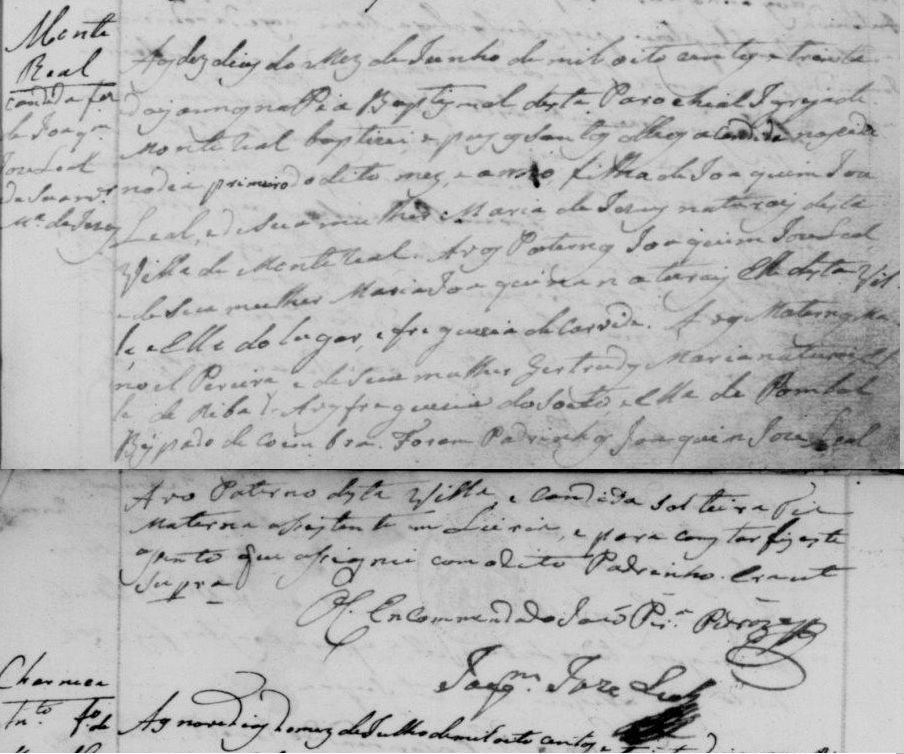 Monte
Real
Candida fa
de Joaqm
Joze Leal
de Sua mr
Ma de Jezus
Aos dez dias do Mez de Junho de mil oito centos e trinta
e dois annos na Pia Baptismal desta Parochial Igreja de
Monte Real baptizei e puz os Santos Oleos a Candida nascida
no dia primeiro do dito mez, e anno, filha de Joaquim Joze
Leal, e de Sua mulher Maria de Jezus naturais desta
Villa de Monte Real. Avos Paternos Joaquim Joze Leal
e de Sua mulher Maria Joaquina naturais Elle desta Vil
la e Ella do lugar, e freguezia de Carvide. Avos Maternos Ma
noel Pereira e de Sua mulher Gertrudes Maria naturais El
le de Riba d'Aves freguezia do Souto e Ella de Pombal
Bispado de Coimbra. Foram Padrinhos Joaquim Joze Leal
Avo Paterno desta Villa, e Candida solteira Tia
Materna assistente em Leiria, e para constar fiz este
assento que assignei com o dito Padrinho. Era ut
supra
O Encommendado João Pera
Joaqm Joze Leal
Charneca
Anto fo de
Aos nove dias do mez de Julho de mil oito centos e